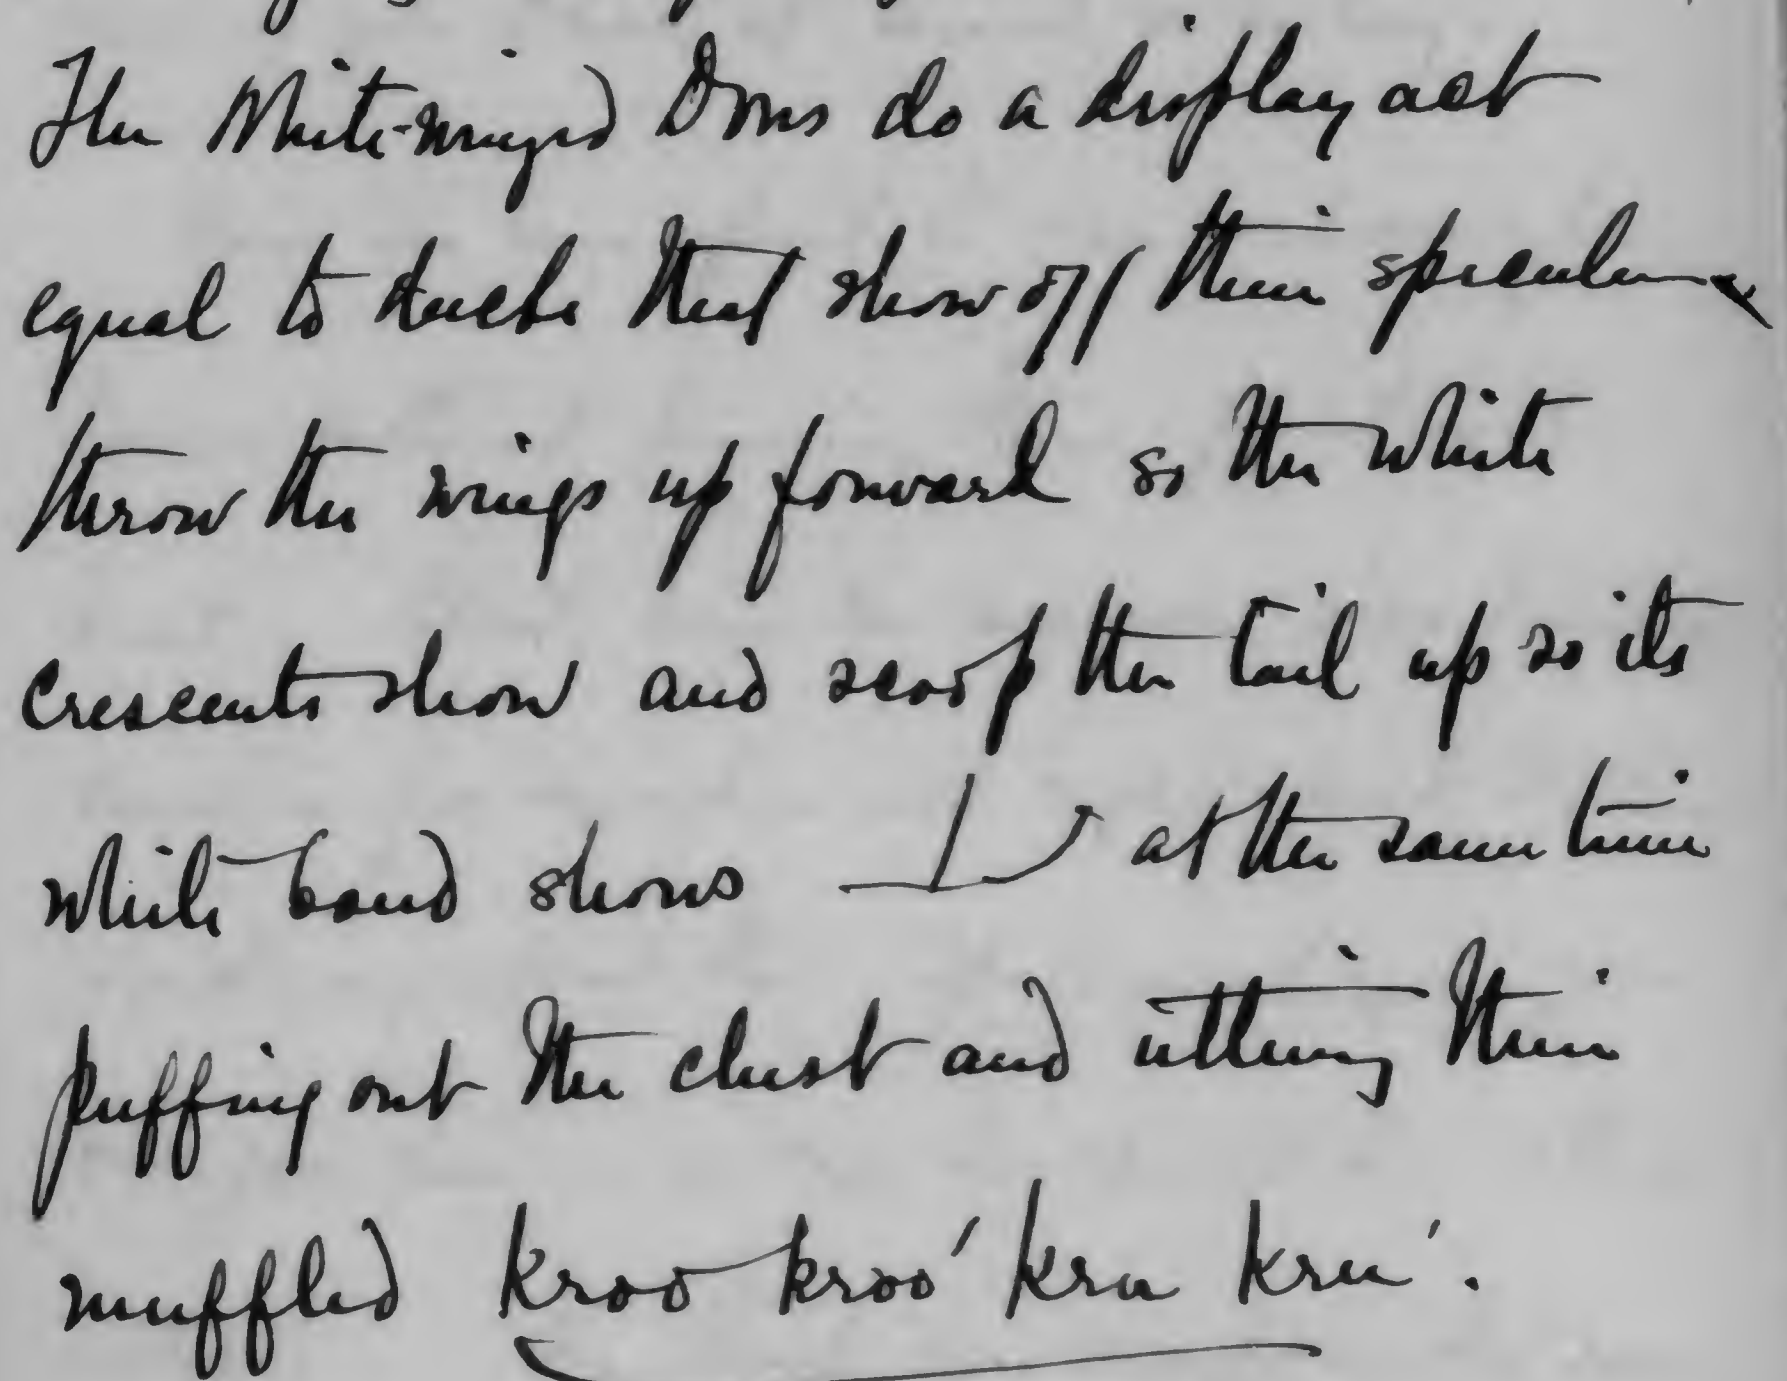 The White-winged Doves do a display act
equal to ducks that show off their specula
throw the wings up forward so the white
crescents show and scoop the tail up so its
white band shows at the same time
puffing out the chest and uttering their
muffled kroo kroo' kru kru'.